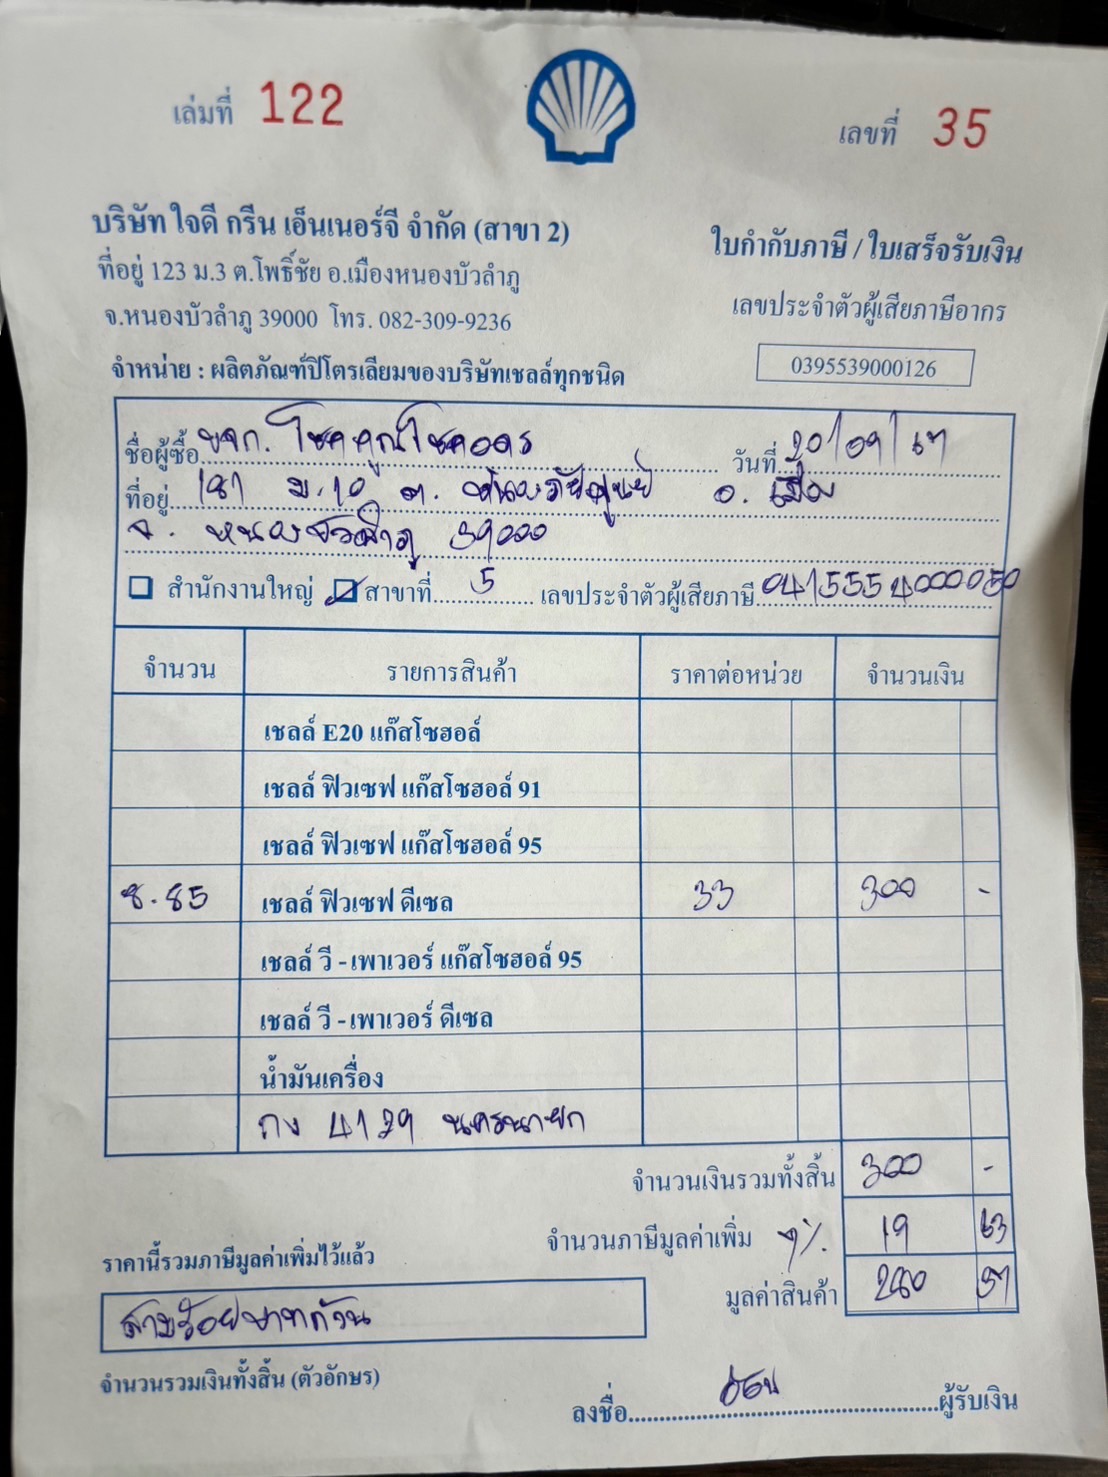 เล่มที่ 122
เลขที่ 35
บริษัท ใจดี กรีน เอ็นเนอร์จี จำกัด (สาขา 2)
ใบกำกับภาษี / ใบเสร็จรับเงิน
ที่อยู่ 123 ม.3 ต.โพธิ์ชัย อ.เมืองหนองบัวลำภู
เลขประจำตัวผู้เสียภาษีอากร
จ.หนองบัวลำภู 39000 โทร. 082-309-9236
0395539000126
จำหน่าย : ผลิตภัณฑ์ปิโตรเลียมของบริษัทเชลล์ทุกชนิด
ชื่อผู้ซื้อ หจก. โชคคูณโชคอุดร วันที่ 20/09/67
ที่อยู่ 181 ม.10 ต. หนองภัยศูนย์ อ. เมือง
จ. หนองบัวลำภู 39000
สำนักงานใหญ่ สาขาที่ 5 เลขประจำตัวผู้เสียภาษี 0415554000050
จำนวน รายการสินค้า ราคาต่อหน่วย จำนวนเงิน
เชลล์ E20 แก๊สโซฮอล์
เชลล์ ฟิวเซฟ แก๊สโซฮอล์ 91
เชลล์ ฟิวเซฟ แก๊สโซฮอล์ 95
8.85 เชลล์ ฟิวเซฟ ดีเซล 33 300 -
เชลล์ วี - เพาเวอร์ แก๊สโซฮอล์ 95
เชลล์ วี - เพาเวอร์ ดีเซล
น้ำมันเครื่อง
กง 4129 นครนายก
จำนวนเงินรวมทั้งสิ้น 300 -
จำนวนภาษีมูลค่าเพิ่ม 7% 19 63
ราคานี้รวมภาษีมูลค่าเพิ่มไว้แล้ว
มูลค่าสินค้า 280 37
สามร้อยบาทถ้วน
จำนวนรวมเงินทั้งสิ้น (ตัวอักษร)
ลงชื่อ ผู้รับเงิน